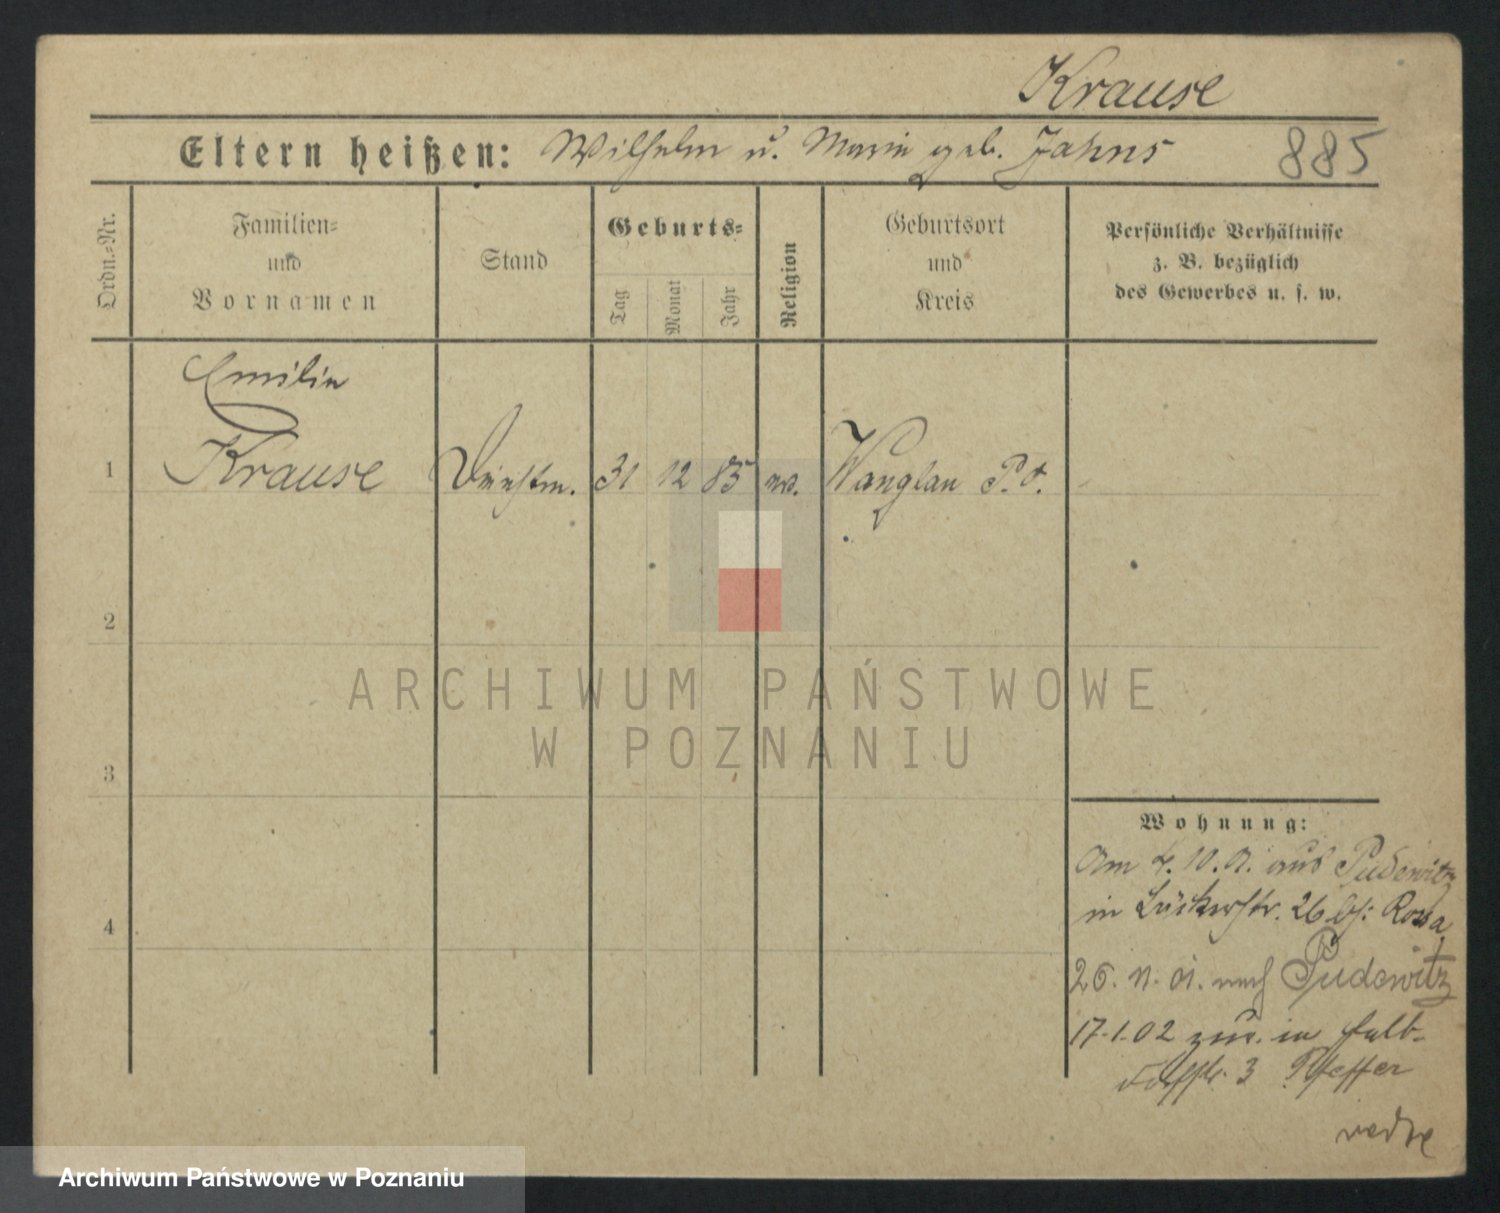 Krause
Eltern heißen: Wilhelm u. Marie geb. Jahns 885
Ordn.-Nr.
Familien-
und
Vornamen
Stand
Geburts-
Tag
Monat
Jahr
Religion
Geburtsort
und
Kreis
Persönliche Verhältnisse
z. B. bezüglich
des Gewerbes u. s. w.
Emilie
1 Krause Dienstm. 31 12 85 ev. Wanglau P. O.
2
3
4
Wohnung:
Am 4. 10. 01. aus Pudewitz
in 26 bei Rossa
26. 11. 01. nach Pudewitz
17.1.02 zur. in Halb-
dorfstr. 3 Pfeffer
ARCHIWUM PAŃSTWOWE
W POZNANIU
Archiwum Państwowe w Poznaniu